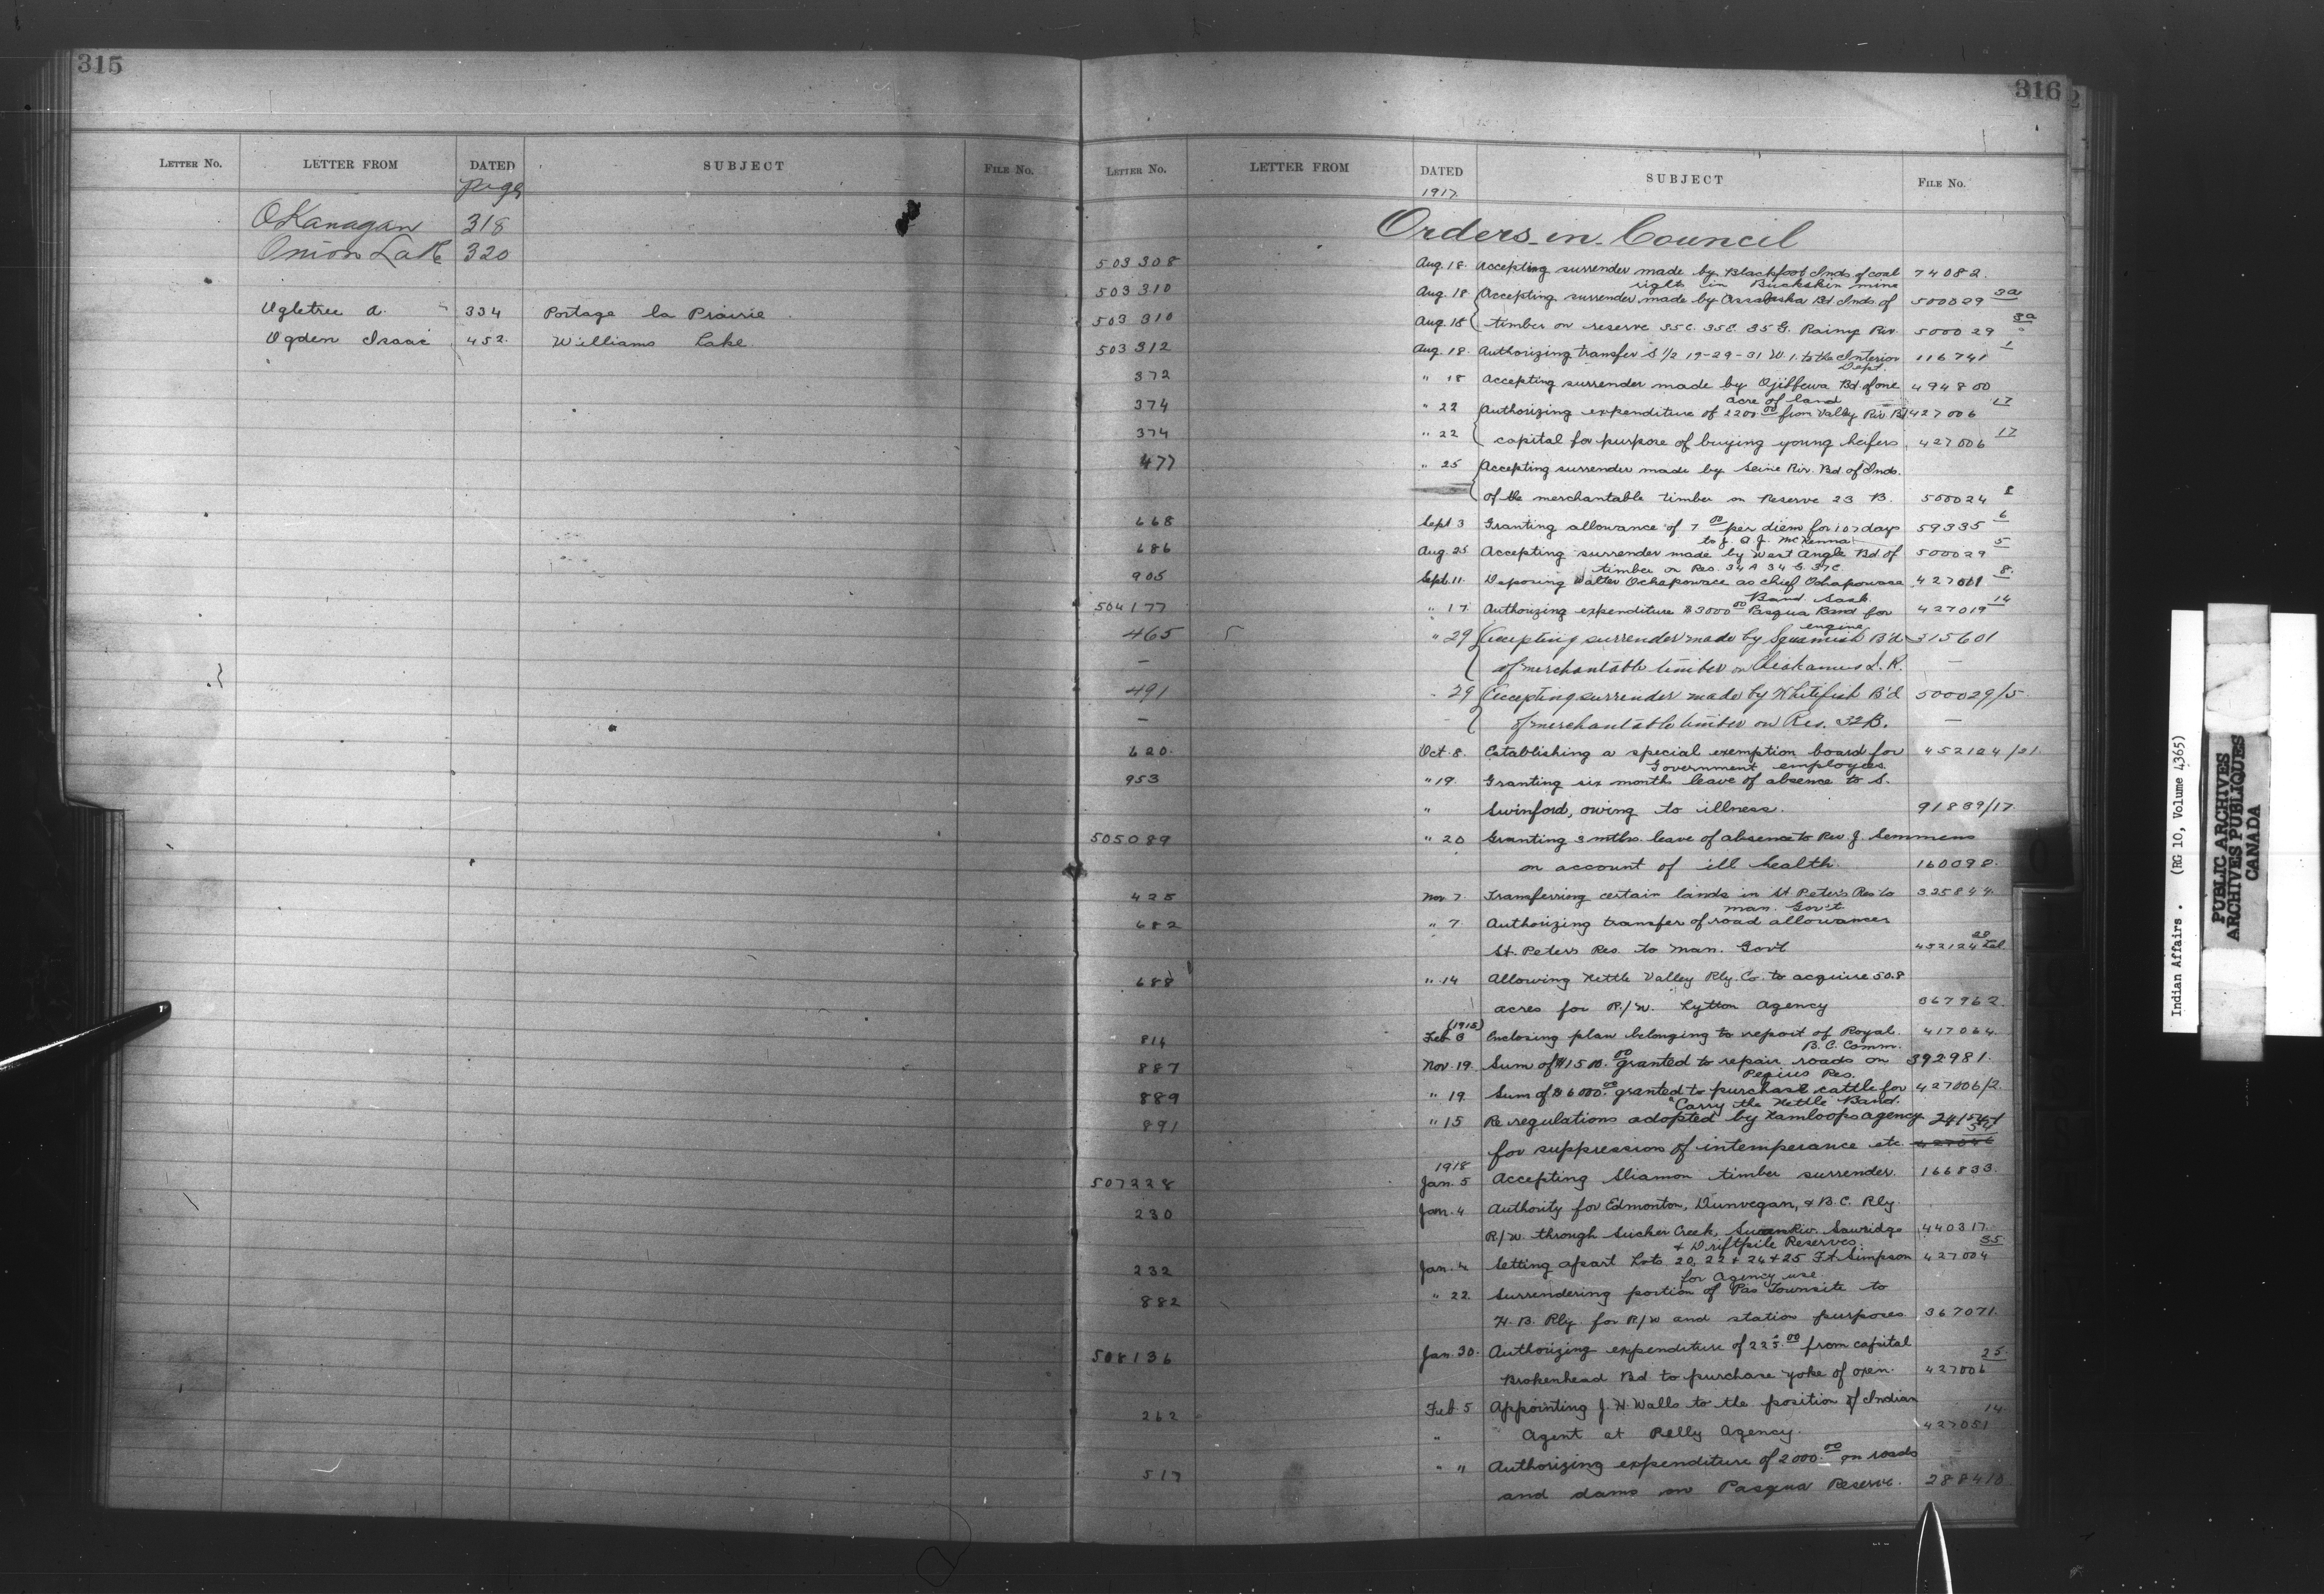 315
LETTER NO. LETTER FROM DATED SUBJECT FILE NO.
page
OKanagan 318
Onion Lake 320
Ogletree A. 334 Portage la Prairie
Ogden Isaac 452 Williams Lake
316
LETTER NO. LETTER FROM DATED SUBJECT FILE NO.
1917
Orders-in-Council
503308 Aug. 18 Accepting surrender made by Blackfoot Inds of coal 74082
right in Buckskin mine
503310 Aug. 18 Accepting surrender made by Assabaska Bd Inds. of 500029 3a
503310 Aug. 18 timber on reserve 35C. 35E 35G. Rainy Riv. 500029 3a
503312 Aug. 18. Authorizing transfer S 1/2 19-29-31 W. 1. to the Interior 116741 1
Dept.
372 " 18 Accepting surrender made by Ojibbewa Bd. of one 494800
acre of land
374 " 22 Authorizing expenditure of 2200 00 from Valley Riv Bd 427006 17
374 " 22 capital for purpose of buying young heifers 427006 17
477 " 25 Accepting surrender made by Seine Riv. Bd. of Inds.
of the merchantable timber on Reserve 23 B. 500024 8
668 Sept 3 Granting allowance of 7 00 per diem for 107 days 59335 6
to J. A. J. McKenna
686 Aug. 25 Accepting surrender made by West Angle Bd. of 500029 5
timber on Res. 34A 34G. 37C
905 Sept. 11. Deposing Walter Ochapowace as chief Ochapowace 427001 8.
Band. Sask.
504177 " 17 Authorizing expenditure $3000 00 Pasqua Band for 427019 14
engine
465 " 29 Accepting surrender made by Squamish B'd 315601
— of merchantable timber on Cheakamus I. R. —
491 " 29 Accepting surrender made by Whitefish B'd 500029/5
— of merchantable timber on Res. 32B. —
620 Oct. 8. Establishing a special exemption board for 452124/21
Government employees
953 " 19. Granting six months leave of absence to S.
" Swinford, owing to illness. 91839/17
505089 " 20 Granting 3 mths. leave of absence to Rev. J. Semmens
on account of ill health. 160098.
425 Nov 7. Transferring certain lands in St Peter's Res to 325844
man. Gov't.
682 " 7. Authorizing transfer of road allowances
St. Peter's Res. to Man. Gov't 452124
688 " 14 Allowing Kettle Valley Rly. Co. to acquire 50.8
acres for R/W. Lytton Agency 367962
(1918)
814 Feb 8 Enclosing plan belonging to report of Royal 417064
B.C. Comm.
887 Nov. 19. Sum of $1500. 00 granted to repair roads on 392981.
Peguis Res.
889 " 19 Sum of $6000. 00 granted to purchase cattle for 427006/2
"Carry the Kettle Band.
891 " 15 Re regulations adopted by Kamloops agency
for suppression of intemperance etc.
1918
507228 Jan. 5 Accepting Sliamon timber surrender. 166833
230 Jan. 4 Authority for Edmonton, Dunvegan, & B.C. Rly
R/W. through Sucker Creek, Swan Riv. Sawridge 440317
& Driftpile Reserves.
232 Jan. 4 Setting apart Lots 20, 22 & 24 & 25 Ft. Simpson 427004 35
for Agency use.
882 " 22. Surrendering portion of Pas Townsite to
H. B. Rly. for R/W and station purposes 367071.
508136 Jan. 30. Authorizing expenditure of 225. 00 from capital
Brokenhead Bd. to purchase yoke of oxen. 427006 25
262 Feb. 5 Appointing J. H. Walls to the position of Indian
" Agent at Pelly Agency. 427051 14
517 " " Authorizing expenditure of 2000. 00 on roads
and dams on Pasqua Reserve. 288410
Indian Affairs. (RG 10, Volume 4365)
PUBLIC ARCHIVES
ARCHIVES PUBLIQUES
CANADA